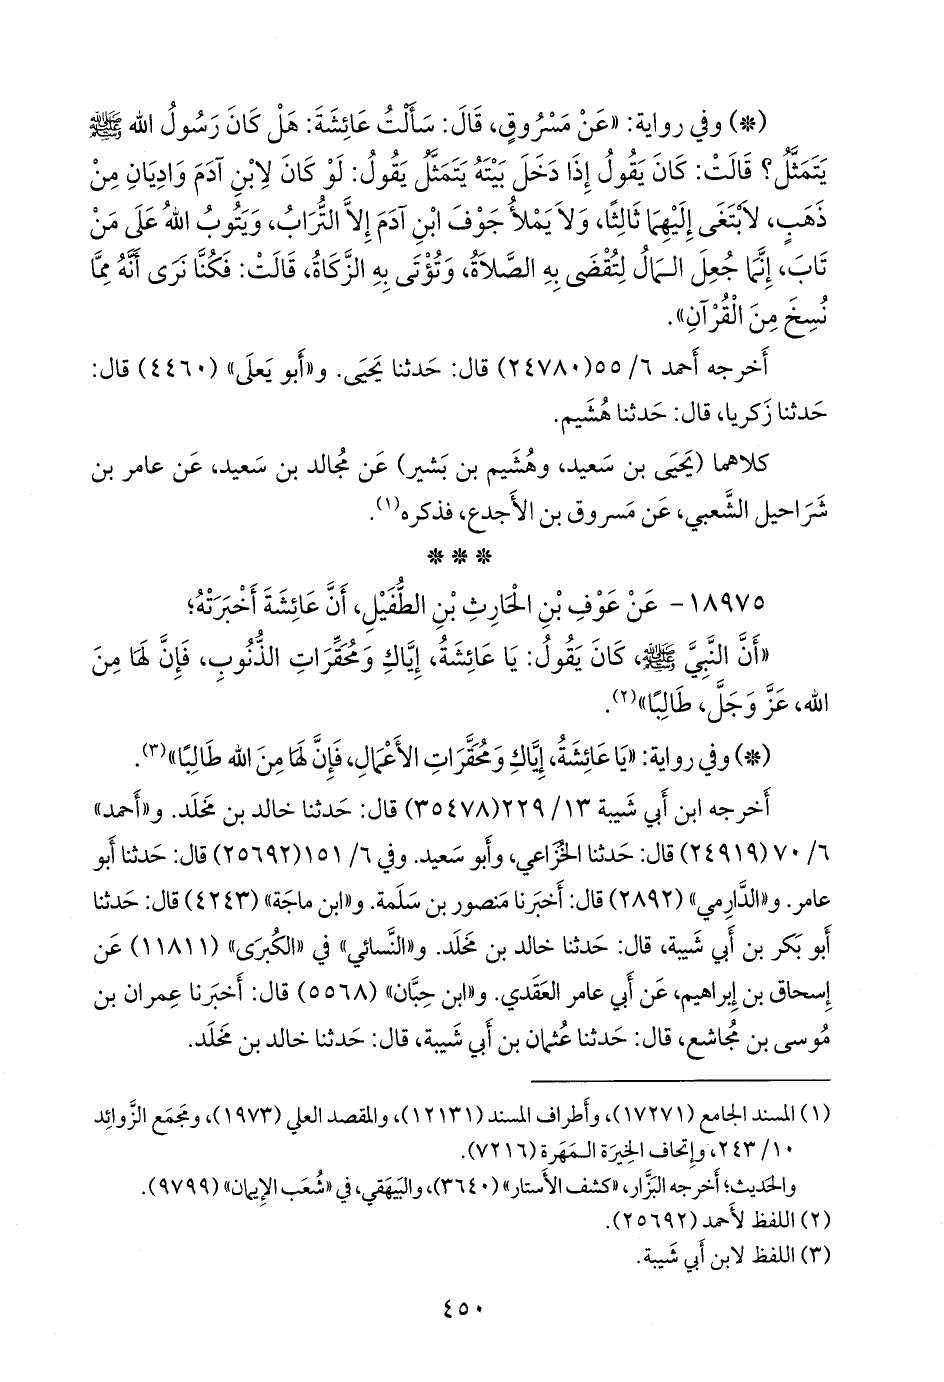 (*) وفي رواية: «عَنْ مَسْرُوقٍ، قَالَ: سَأَلْتُ عَائِشَةَ: هَلْ كَانَ رَسُولُ الله ﷺ
يَتَمَثَّلُ؟ قَالَتْ: كَانَ يَقُولُ إِذَا دَخَلَ بَيْتَهُ يَتَمَثَّلُ يَقُولُ: لَوْ كَانَ لِابْنِ آدَمَ وَادِيَانِ مِنْ
ذَهَبٍ، لاَبْتَغَى إِلَيْهِمَا ثَالِثًا، وَلاَ يَمْلأُ جَوْفَ ابْنِ آدَمَ إِلاَّ التُّرَابُ، وَيَتُوبُ اللهُ عَلَى مَنْ
تَابَ، إِنَّمَا جُعِلَ المَالُ لِتُقْضَى بِهِ الصَّلاَةُ، وَتُؤْتَى بِهِ الزَّكَاةُ، قَالَتْ: فَكُنَّا نَرَى أَنَّهُ مِمَّا
نُسِخَ مِنَ الْقُرْآنِ».
أَخرجه أَحمد ٦/ ٥٥(٢٤٧٨٠) قال: حَدثنا يَحيَى. و«أَبو يَعلَى» (٤٤٦٠) قال:
حَدثنا زَكريا، قال: حَدثنا هُشَيم.
كلاهما (يَحيَى بن سَعيد، وهُشَيم بن بَشير) عَن مُجالد بن سَعيد، عَن عامر بن
شَرَاحيل الشَّعبي، عَن مَسروق بن الأَجدع، فذكره(١).
***
١٨٩٧٥- عَنْ عَوْفِ بْنِ الحَارِثِ بْنِ الطُّفَيْلِ، أَنَّ عَائِشَةَ أَخْبَرَتْهُ؛
«أَنَّ النَّبِيَّ ﷺ، كَانَ يَقُولُ: يَا عَائِشَةُ، إِيَّاكِ وَمُحَقَّرَاتِ الذُّنُوبِ، فَإِنَّ لَهَا مِنَ
الله، عَزَّ وَجَلَّ، طَالِبًا»(٢).
(*) وفي رواية: «يَا عَائِشَةُ، إِيَّاكِ وَمُحَقَّرَاتِ الأَعْمَالِ، فَإِنَّ لَهَا مِنَ الله طَالِبًا»(٣).
أَخرجه ابن أَبي شَيبة ١٣/ ٢٢٩(٣٥٤٧٨) قال: حَدثنا خالد بن مَخلَد. و«أَحمد»
٦/ ٧٠(٢٤٩١٩) قال: حَدثنا الخُزَاعي، وأَبو سَعيد. وفي ٦/ ١٥١(٢٥٦٩٢) قال: حَدثنا أَبو
عامر. و«الدَّارِمي» (٢٨٩٢) قال: أَخبَرنا مَنصور بن سَلَمة. و«ابن ماجة» (٤٢٤٣) قال: حَدثنا
أَبو بَكر بن أَبي شَيبة، قال: حَدثنا خالد بن مَخلَد. و«النَّسائي» في «الكُبرَى» (١١٨١١) عَن
إِسحاق بن إِبراهيم، عَن أَبي عامر العَقَدي. و«ابن حِبَّان» (٥٥٦٨) قال: أَخبَرنا عِمران بن
مُوسى بن مُجاشع، قال: حَدثنا عُثمان بن أَبي شَيبة، قال: حَدثنا خالد بن مَخلَد.
(١) المسند الجامع (١٧٢٧١)، وأَطراف المسند (١٢١٣١)، والمقصد العلي (١٩٧٣)، ومَجمَع الزَّوائِد
١٠/ ٢٤٣، وإِتحاف الخِيرَة المَهَرة (٧٢١٦).
والحَديث؛ أَخرجه البَزَّار، «كشف الأَستار» (٣٦٤٠)، والبَيهَقي، في «شُعَب الإِيمان» (٩٧٩٩).
(٢) اللفظ لأَحمد (٢٥٦٩٢).
(٣) اللفظ لابن أَبي شَيبة.
٤٥٠